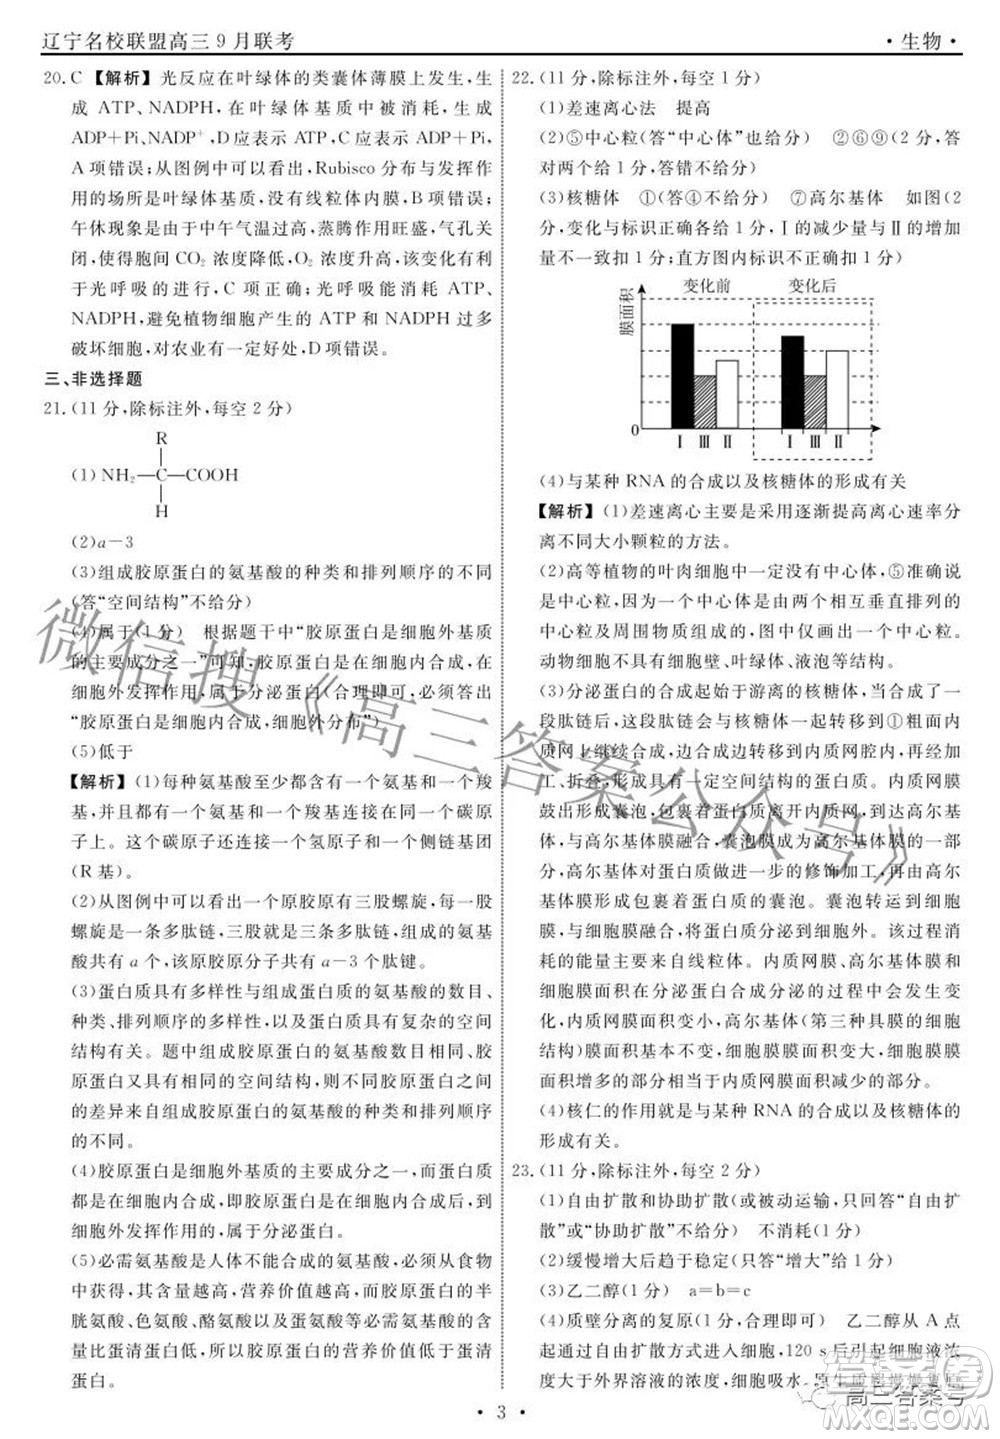 辽宁名校联盟高三9月联考
·生物·
20.C 【解析】光反应在叶绿体的类囊体薄膜上发生,生
成 ATP、NADPH,在叶绿体基质中被消耗,生成
ADP+Pi、NADP⁺,D应表示ATP,C应表示ADP+Pi,
A项错误;从图例中可以看出,Rubisco分布与发挥作
用的场所是叶绿体基质,没有线粒体内膜,B项错误;
午休现象是由于中午气温过高,蒸腾作用旺盛,气孔关
闭,使得胞间 CO₂ 浓度降低,O₂ 浓度升高,该改变有利
于光呼吸的进行,C项正确;光呼吸能消耗 ATP、
NADPH,避免植物细胞产生的 ATP 和 NADPH 过多
破坏细胞,对农业有一定好处,D项错误。
三、非选择题
21.(11分,除标注外,每空2分)
R
(1)NH₂—C—COOH
H
(2)a-3
(3)组成胶原蛋白的氨基酸的种类和排列顺序的不同
(答“空间结构”不给分)
(4)属于(1分) 根据题干中“胶原蛋白是细胞外基质
的主要成分之一”可知,胶原蛋白在细胞内合成,在细胞
外发挥作用,属于分泌蛋白(合理即可,必须答出
“胶原蛋白是细胞内合成,细胞外分布”)
(5)低于
【解析】(1)每种氨基酸至少都含有一个氨基和一个羧
基,并且都有一个氨基和一个羧基连接在同一个碳原
子上。这个碳原子还连接一个氢原子和一个侧链基团
(R基)。
(2)从图例中可以看出一个原胶原蛋白共三股螺旋,每
股螺旋是一条多肽链,三股就是三条多肽链,组成的氨基
酸共有 a 个,该原胶原分子共 a-3 个肽键。
(3)蛋白质的多样性与组成蛋白质的氨基酸的数目、
种类、排列顺序的多样性,以及蛋白质具有复杂的空间
结构有关。题中给出胶原蛋白的氨基酸数目相同、
多种胶原蛋白具有相同的空间结构,则不同胶原蛋白
的差异来自组成胶原蛋白的氨基酸的种类和排列顺序
的不同。
(4)胶原蛋白是细胞外基质的主要成分之一,而蛋白质
是在细胞内合成,即胶原蛋白在细胞内合成后,到细胞
外发挥作用,属于分泌蛋白。
(5)必需氨基酸是人体不能合成的氨基酸,必须从食物
中获取,其含量越高,营养价值越高,图中给出的是半
胱氨酸、色氨酸、酪氨酸以及蛋氨酸的含量,从表中可
以看出,胶原蛋白的营养价值均低于鸡蛋清
蛋白。
22.(11分,除标注外,每空1分)
(1)差速离心法 提高
(2)⑤中心粒(答“中心体”也给分) ②⑥⑨(2分,答
对两个给1分,答错不给分)
(3)核糖体 ①(答④不给分) ⑦高尔基体 如图(2
分,变化与标识正确各给1分,Ⅰ的减少量与Ⅱ的增加
量不一致扣1分;直方图内标识不正确扣1分)
膜面积
变化前 变化后
0
Ⅰ Ⅲ Ⅱ Ⅰ Ⅲ Ⅱ
(4)与某种 RNA 的合成以及核糖体的形成有关
【解析】(1)差速离心主要是采用逐渐提高离心速率分
离不同大小颗粒的方法。
(2)高等植物的叶肉细胞中一定没有中心体,⑤准确说
是中心粒,中心体由两个在空间上相互垂直排列的
中心粒及周围物质组成的,图中仅画出一个中心粒。
动物细胞不具有细胞壁、叶绿体、液泡等结构。
(3)分泌蛋白的合成起始于游离的核糖体,合成了一
段肽链后,这段肽链会与核糖体一起转移到①粗面内
质网上继续合成,边合成边转移到内质网腔内,再经过加
工、折叠,形成具有一定空间结构的蛋白质。内质网膜
鼓出形成囊泡,包裹着蛋白质离开内质网,到达高尔基
体,与高尔基体膜融合,囊泡膜成为高尔基体膜的一部
分,高尔基体对蛋白质做进一步的修饰加工,再由高尔
基体膜形成包裹着蛋白质的囊泡。囊泡转运到细胞
膜,与细胞膜融合,将蛋白质分泌到细胞外,这过程消
耗的能量主要来自线粒体。内质网膜、高尔基体膜和
细胞膜的面积在分泌蛋白合成分泌的过程中会发生变
化,内质网膜面积减小,高尔基体(第三种具膜的细胞
结构)膜面积基本不变,细胞膜面积变大,内质网膜面
积的减小量等于细胞膜面积的增加量。
(4)核仁的作用就是与某种 RNA 的合成以及核糖体的
形成有关。
23.(11分,除标注外,每空2分)
(1)自由扩散和协助扩散(或被动运输,只回答“自由扩
散”或“协助扩散”不给分) 不消耗(1分)
(2)缓慢增大后趋于稳定(只答“增大”给1分)
(3)乙二醇(1分) a=b=c
(4)质壁分离的复原(1分,合理即可) 乙二醇从 A 点
起以自由扩散方式进入细胞,120 s后引起细胞液浓
度大于外界溶液的浓度,细胞吸水,原生质层慢慢恢复
· 3 ·
微信搜《高三答案公众号》
高三答案号
答案圈
MXQE.COM